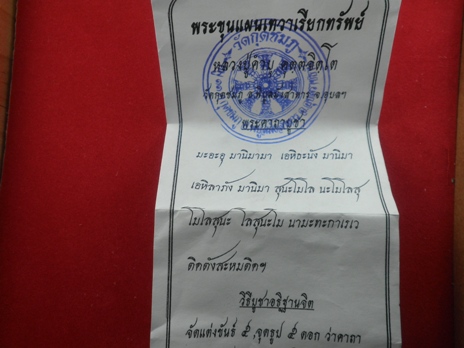 พระขุนแผนเทวาเรียกทรัพย์
วัดกุดชมภู
หลวงปู่คำบุ คุตตจิตโต
วัดกุดชมภู อ.พิบูลมังสาหาร จ.อุบลฯ
พระคาถาบูชา
มะอะอุ มานิมามา เอหิอะนัง มานิมา
เอหิลาภัง มานิมา สุนะโมโล นะโมโลสุ
โมโลสุนะ โลสุนะโม นามะตะกาเรเว
ติดตังสะหมติดฯ
วิธีบูชาอธิฐานจิต
จัดแต่งขันธ์ ๕ ,จุดธูป ๕ ดอก ว่าคาถา